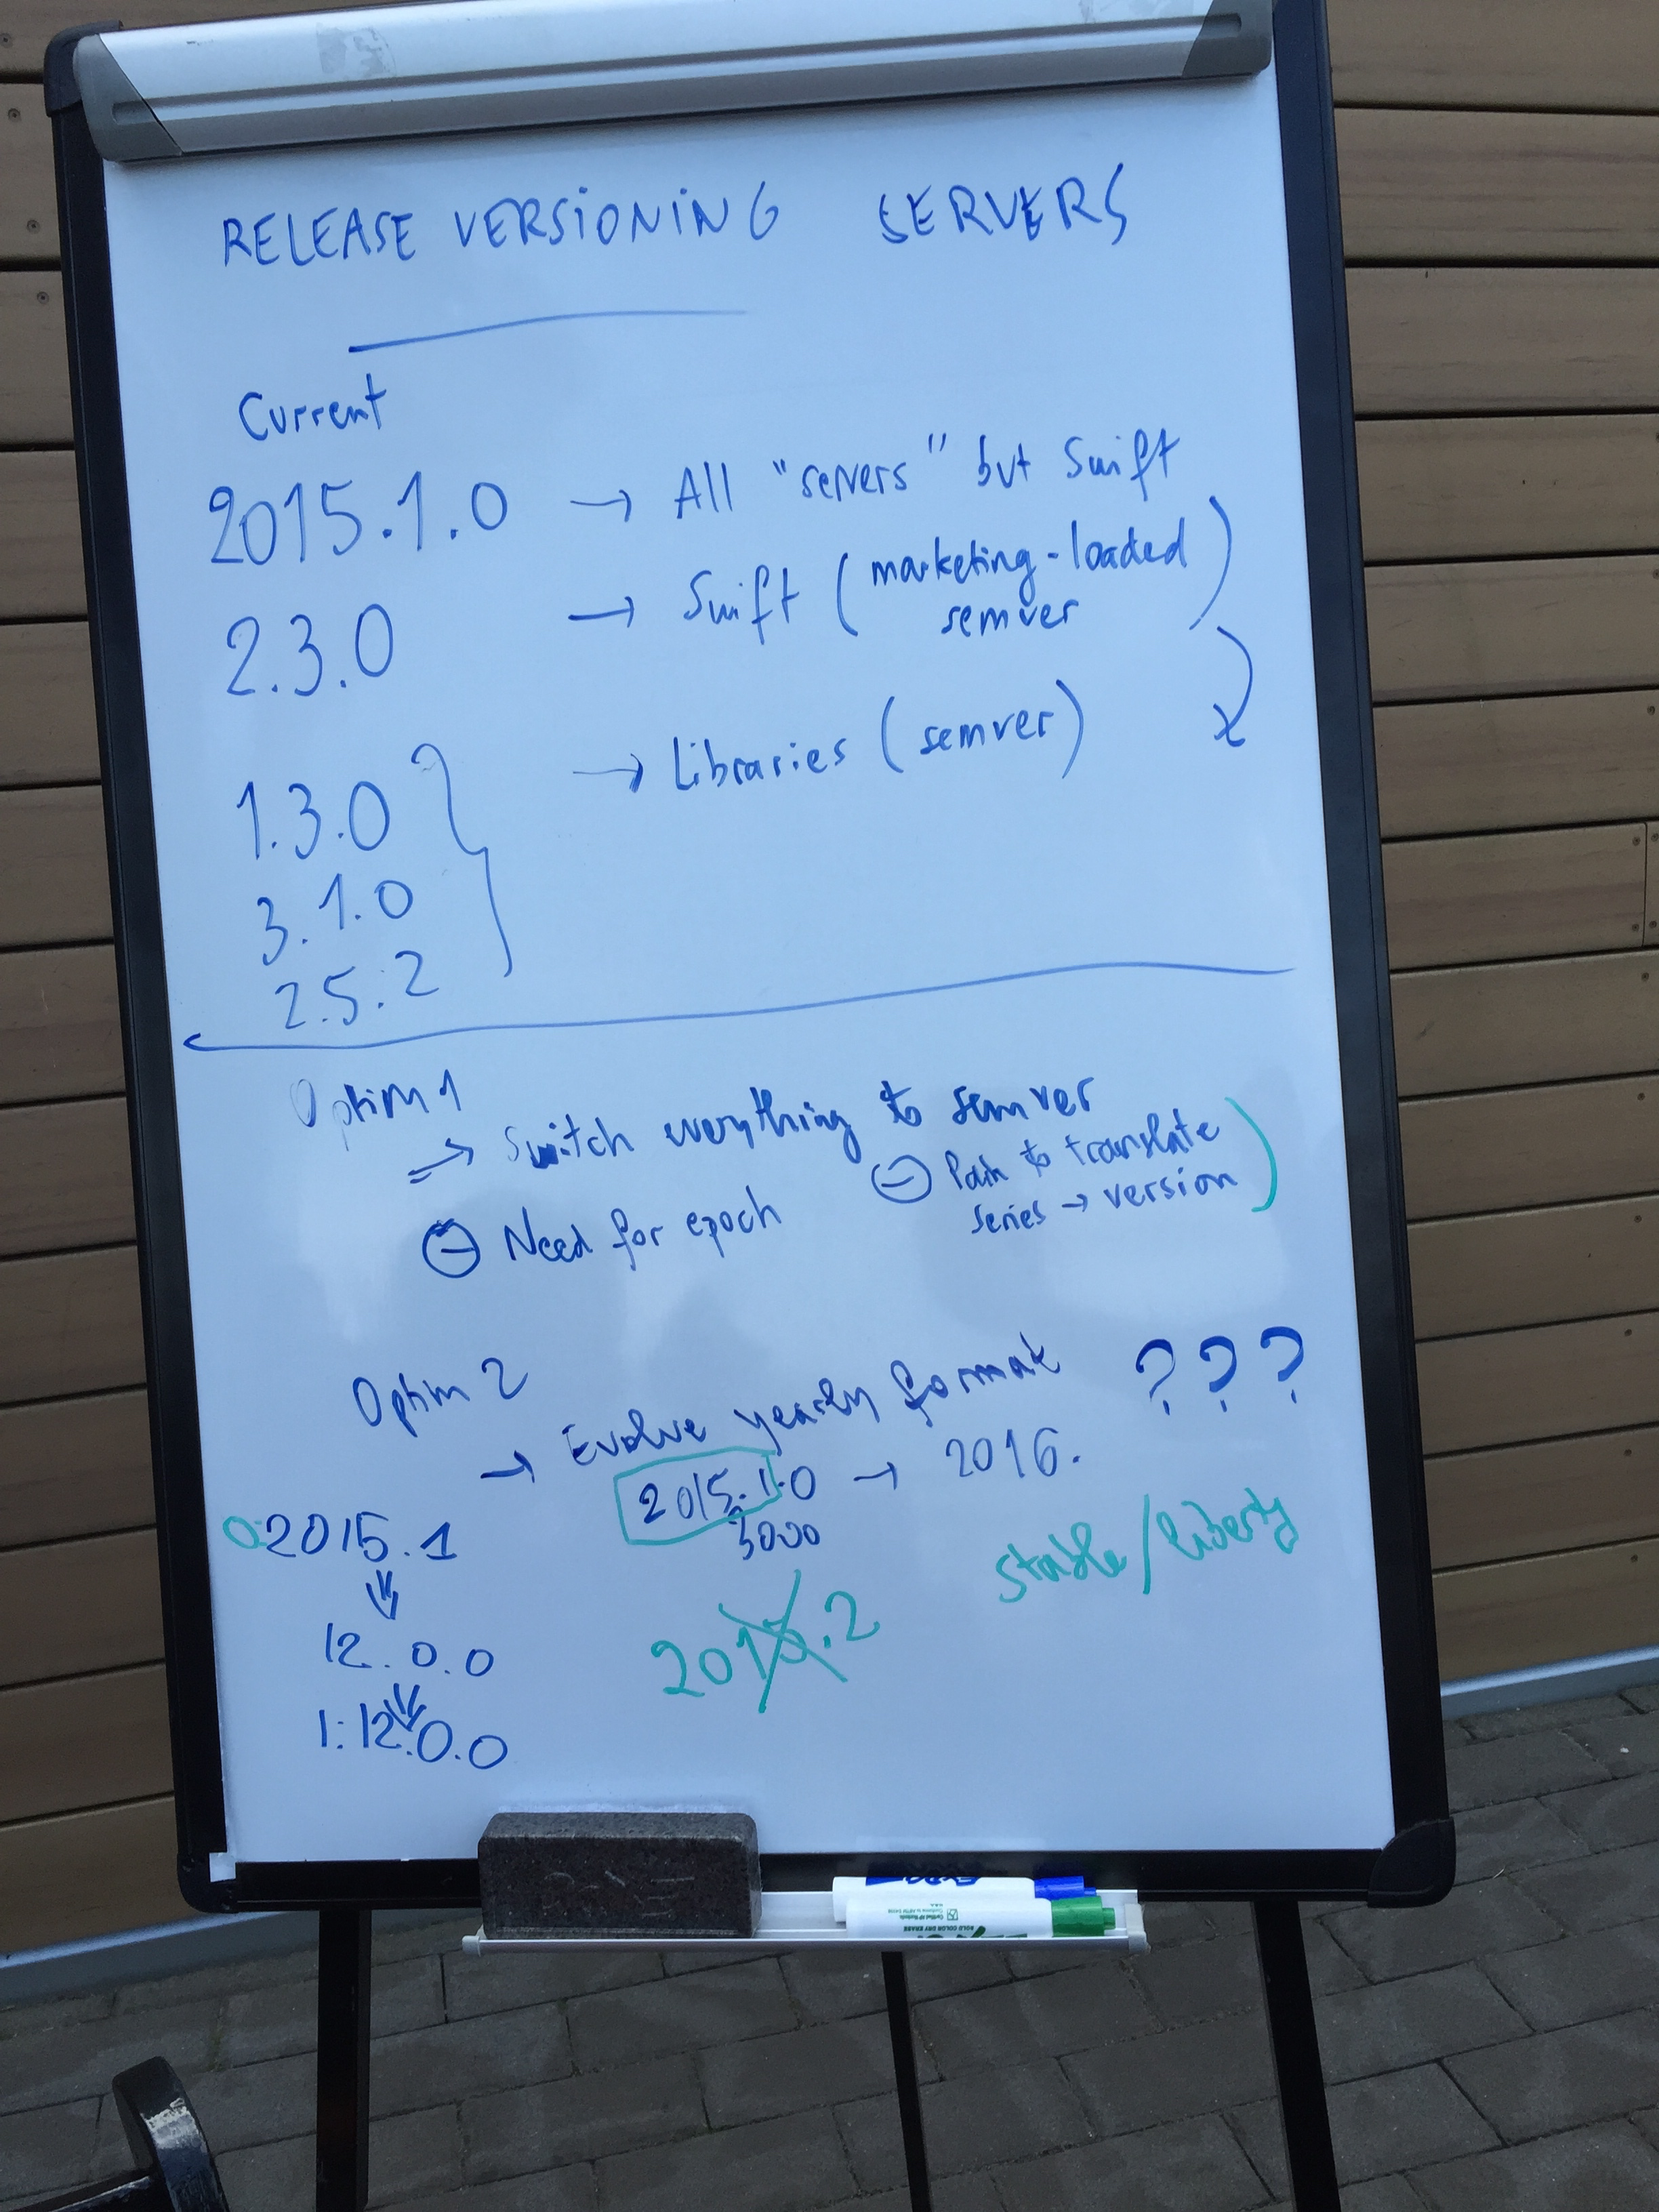 RELEASE VERSIONING SERVERS
Current
2015.1.0 → All "servers" but Swift
2.3.0 → Swift (marketing-loaded
semver)
1.3.0 → Libraries (semver)
3.1.0
2.5.2
Option 1
⇒ Switch everything to semver
⊖ Need for epoch
⊖ Pain to translate
series → version
Option 2
→ Evolve yearly format ???
2015.1.0 → 2016.
0:2015.1
12.0.0
1:12.0.0
2015.2
stable/liberty